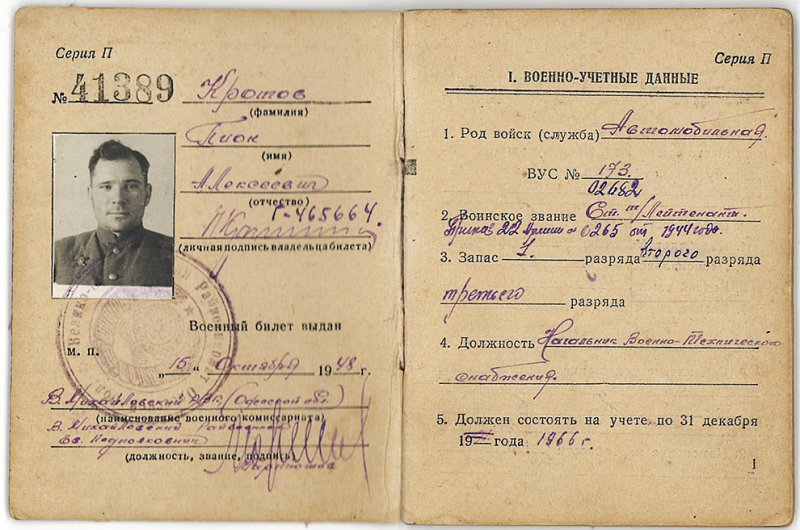 Серия П
№ 41389
Кротов
(фамилия)
Пион
(имя)
Алексеевич
(отчество)
Г-465664.
(личная подпись владельца билета)
Военный билет выдан
М. П.
„15“ Октября 1948 г.
В. Михайловский РВК (Одесской обл.)
(наименование военного комиссариата)
В. Михайловский
Гв. Подполковник
(должность, звание, подпись)
Серия П
I. ВОЕННО-УЧЕТНЫЕ ДАННЫЕ
1. Род войск (служба) Автомобильная.
ВУС № 173.
02682
2. Воинское звание Ст. т/Лейтенант.
Приказ 22 Армии № 0265 от 1944 года.
3. Запас 1. разряда второго разряда
третьего разряда
4. Должность Начальник Военно-Технического
снабжения.
5. Должен состоять на учете по 31 декабря
19 года 1966 г.
1